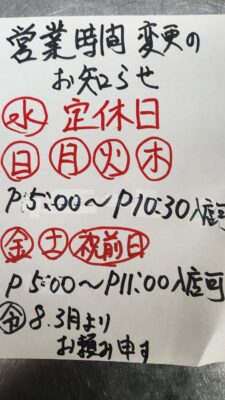 営業時間変更の
お知らせ
水 定休日
日 月 火 木
P5:00〜P10:30入店可
金 土 祝前日
P5:00〜P11:00入店可
令8.3月より
お頼み申す